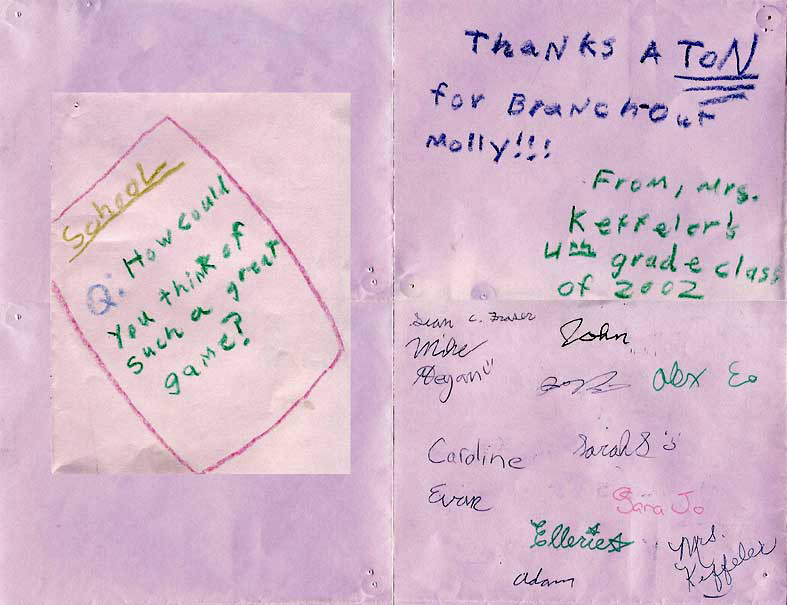 School
Q: How could
you think of
such a great
game?
Thanks A ToN
for Branch-out
Molly!!!
From, Mrs.
Keffeler's
4th grade class
of 2002
Sean C. Fraser
John
Mike
Megan
Alex Eo
Caroline
Sarah S
Evan
Sara Jo
Ellerie
Adam
Mrs.
Keffeler